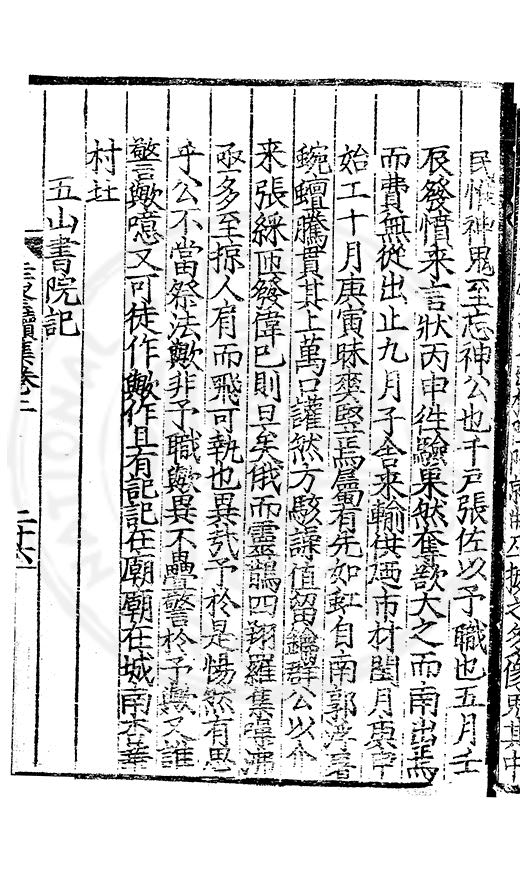 民惰神鬼至忘神公也千戶張佐以予職也五月壬
辰發憤来言狀丙申徃驗果然奪欲大之而南出焉
而費無從出止九月子舍来輸供廼市材閏月庚申
始工十月庚寅昧爽竪焉屬有先如虹自南郭浮暑
蜿蟺騰貫其上萬口讙然方駭譟值留鑰群公以
来張綵匝發偉已則旦矣俄而靈鵲四翔羅集棠
亟多至掠人肩而飛可執也異哉予於是惕然有思
乎公不當祭法歟非予職歟異不疊警於予歟又誰
警歟噫又可徒作歟作且有記記在廟廟在城南杏華
村社
五山書院記
集卷二
二十六